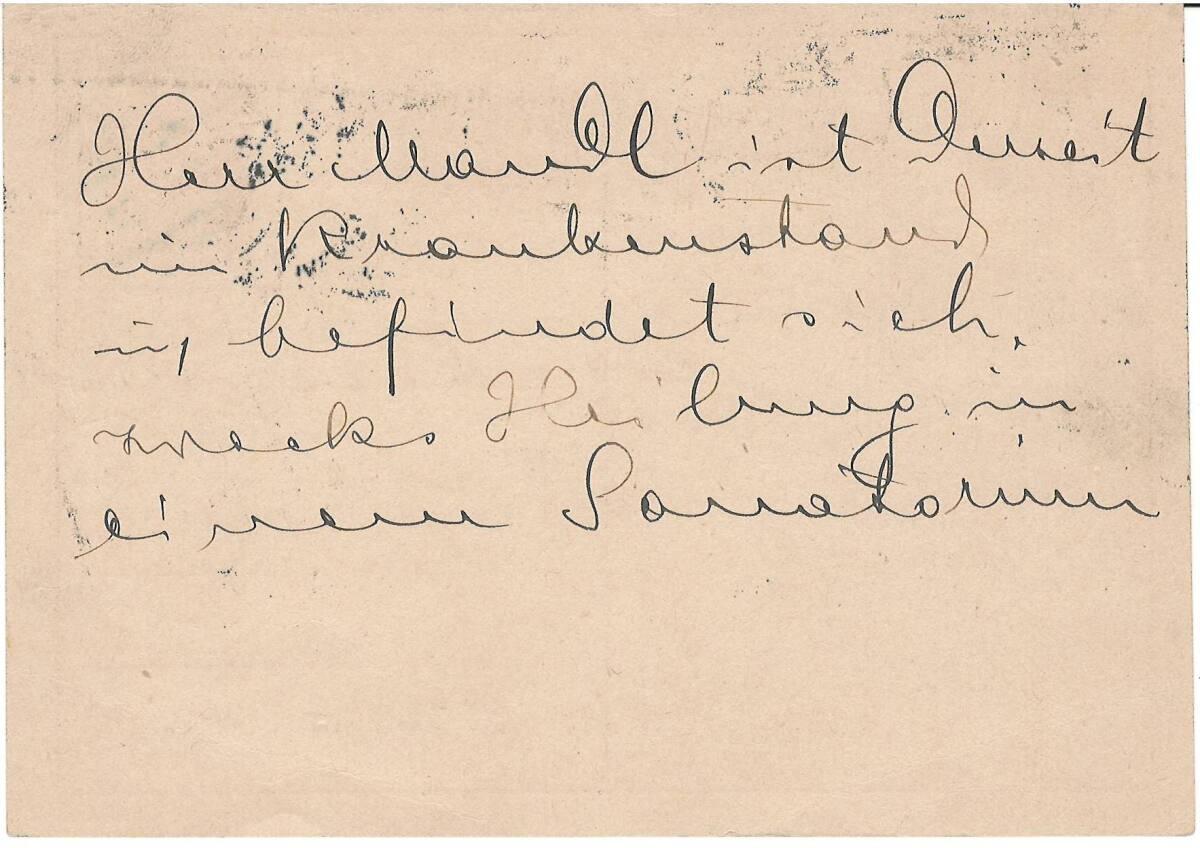 Herr Mandl ist Derzeit
im Krankenstand
u, befindet sich,
zwecks Heilung in
einem Sanatorium